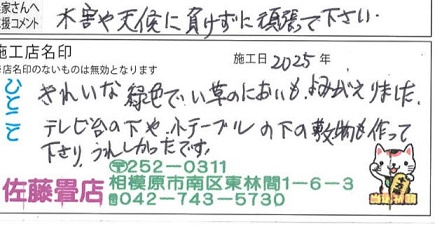 家さんへ
援コメント
水害や天候に負けずに頑張って下さい.
施工店名印
店名印のないものは無効となります
施工日 2025年
ひとこと
きれいな緑色で、い草のにおいも、よみがえりました.
テレビ台の下や、小テーブルの下の敷物も作って
下さり、うれしかったです。
〒252-0311
佐藤畳店 相模原市南区東林間1-6-3
042-743-5730